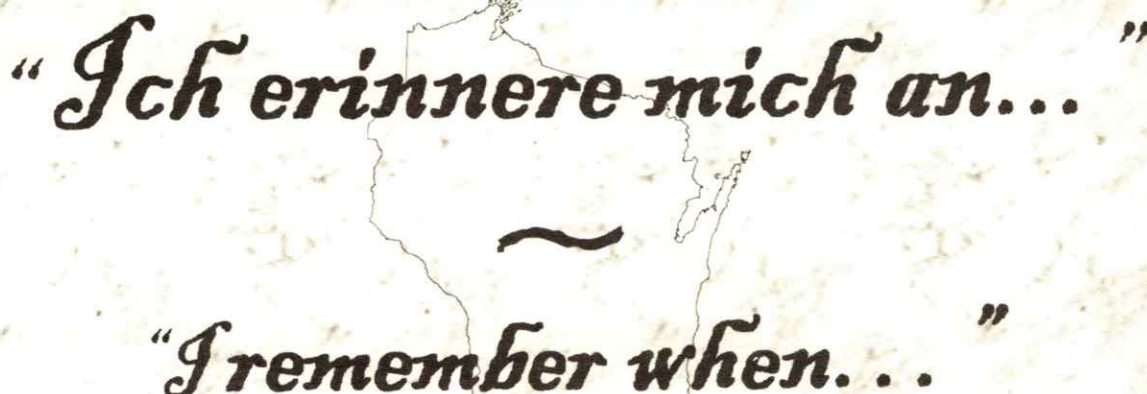 “Ich erinnere mich an...”
~
“I remember when...”